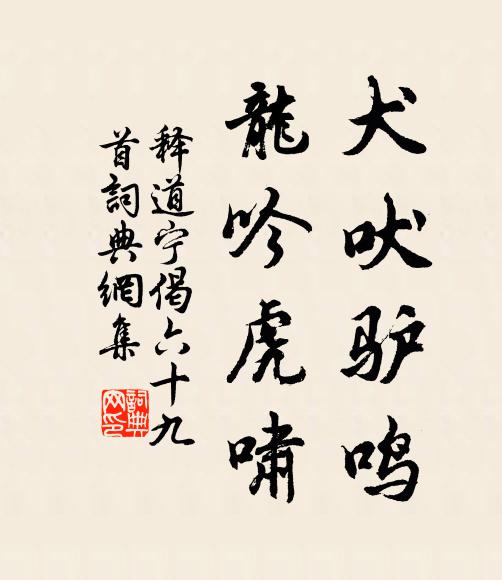 犬吠驴鸣
龍吟虎啸
释道宁偈六十九
首詞典網集
詞典网印